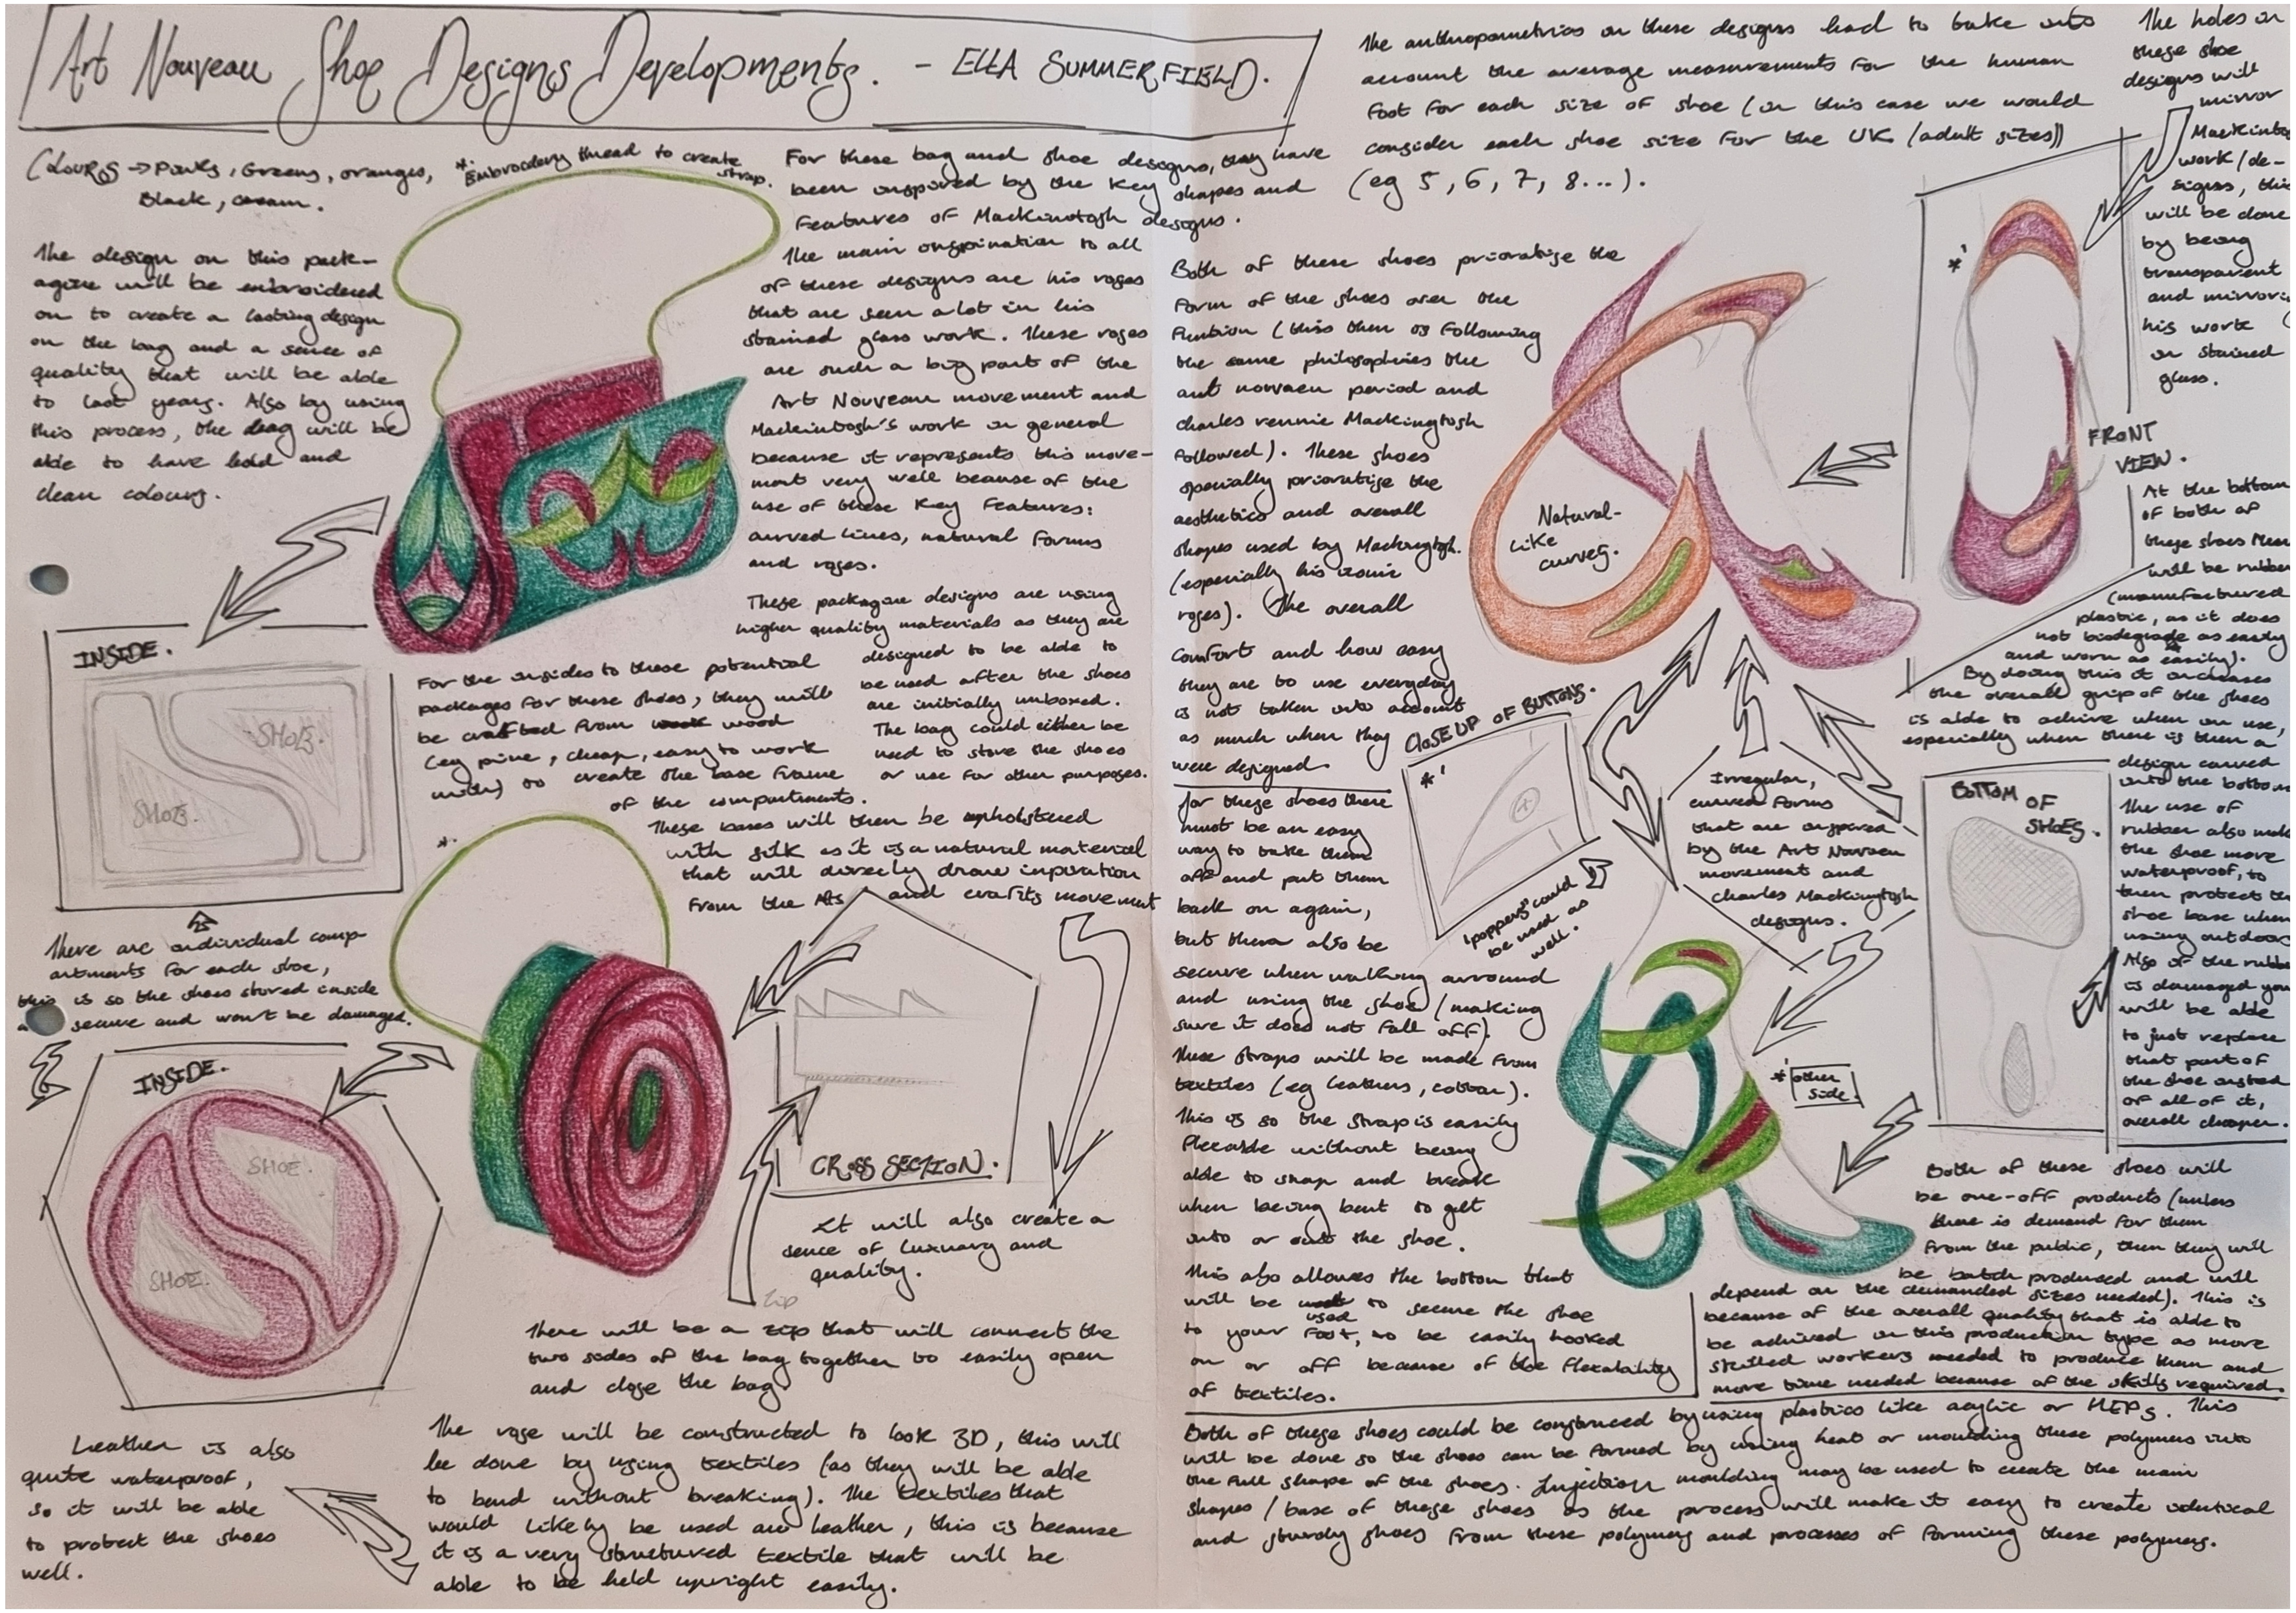 Art Nouveau Shoe Designs Developments. - ELLA SUMMERFIELD.
COLOURS → Pinks, Greens, oranges,
Black, cream.
* Embroidery thread to create
strap.
The design on this pack-
agine will be embroidered
on to create a lasting design
on the bag and a sence of
quality that will be able
to last years. Also by using
this process, the bag will be
able to have bold and
clean colours.
For these bag and shoe designs, they have
been inspired by the key shapes and
features of Mackintosh designs.
The main inspiration to all
of these designs are his roses
that are seen a lot in his
stained glass work. These roses
are such a big part of the
Art Nouveau movement and
Mackintosh's work in general
because it represents this move-
ment very well because of the
use of these key features:
curved lines, natural forms
and roses.
These packagine designs are using
higher quality materials as they are
designed to be able to
be used after the shoes
are initially unboxed.
The bag could either be
used to store the shoes
or use for other purposes.
INSIDE.
SHOES.
SHOES.
For the insides to these potential
packages for these shoes, they will
be crafted from wood
(eg pine, cheap, easy to work
with) to create the base frame
of the compartments.
These bases will then be upholstered
with silk as it is a natural material
that will direcly draw inpiration
from the Arts and crafts movement
There are individual comp-
artments for each shoe,
this is so the shoes stored inside
secure and won't be damaged.
*.
INSIDE.
SHOE.
SHOE.
CROSS SECTION.
It will also create a
sence of luxuary and
quality.
Zip
There will be a zip that will connect the
two sides of the bag together to easily open
and close the bag.
Leather is also
quite waterproof,
so it will be able
to protect the shoes
well.
The rose will be constructed to look 3D, this will
be done by using textiles (as they will be able
to bend without breaking). The textiles that
would likely be used are leather, this is because
it is a very structured textile that will be
able to be held upright easily.
The anthropometrics on these designs had to take into
account the average measurements for the human
foot for each size of shoe (in this case we would
consider each shoe size for the UK (adult sizes))
(eg 5, 6, 7, 8...).
The holes in
these shoe
designs will
mirror
work/de-
signs, this
will be done
by being
transparent
and
his work
in stained
glass.
Both of these shoes prioratise the
form of the shoes over the
funtion (this then is following
the same philosophies the
art norvaeu period and
charles rennie Mackingtosh
followed). These shoes
prioratise the
aesthetics and overall
shapes used by Mackingtosh.
(especially his iconic
roses). The overall
comfort and how easy
they are to use everyday
is not taken into account
as much when they
were designed.
Natural-
like
curves.
*'
FRONT
VIEW.
At the bottom
of both of
these shoes
will be rubber
(manufactured
plastic, as it does
not biodegrade as easily
and worn as easily).
By doing this it increases
the overall grip of the shoes
is able to achive when in use,
especially when there is then a
design carved
into the bottom
The use of
rubber also
the shoe more
waterproof, to
then protect the
shoe base when
using outdoor
Also if the rubber
is damaged you
will be able
to just replace
that part of
the shoe insted
of all of it,
overall cheaper.
CLOSE UP OF BUTTONS.
*'
'poppers' could
be used as
well.
Irregular,
curved forms
that are inspired
by the Art
movement and
charles Mackingtosh
designs.
BOTTOM OF
SHOES.
for these shoes there
must be an easy
way to take them
off and put them
back on again,
but them also be
secure when walking arround
and using the shoe (making
sure it does not fall off).
These straps will be made from
textiles (eg leathers, cotton).
This is so the strap is easily
without being
able to snap and break
when being bent to get
into or out the shoe.
This also allows the bottom that
will be used to secure the shoe
to your foot, to be easily hooked
on or off because of the flexability
of textiles.
*' other
side.
Both of these shoes will
be one-off products (unless
there is demand for them
from the public, then they will
be batch produced and will
depend on the demanded sizes needed). This is
because of the overall quality that is able to
be achived in this production type as more
skilled workers needed to produce them and
more time needed because of the skills required.
Both of these shoes could be by using plastics like acylic or HIPS. This
will be done so the shoes can be formed by using heat or moulding these polymers into
the full shape of the shoes. Injection moulding may be used to create the main
shapes / base of these shoes as the process will make it easy to create identical
and sturdy shoes from these polymers and processes of forming these polymers.